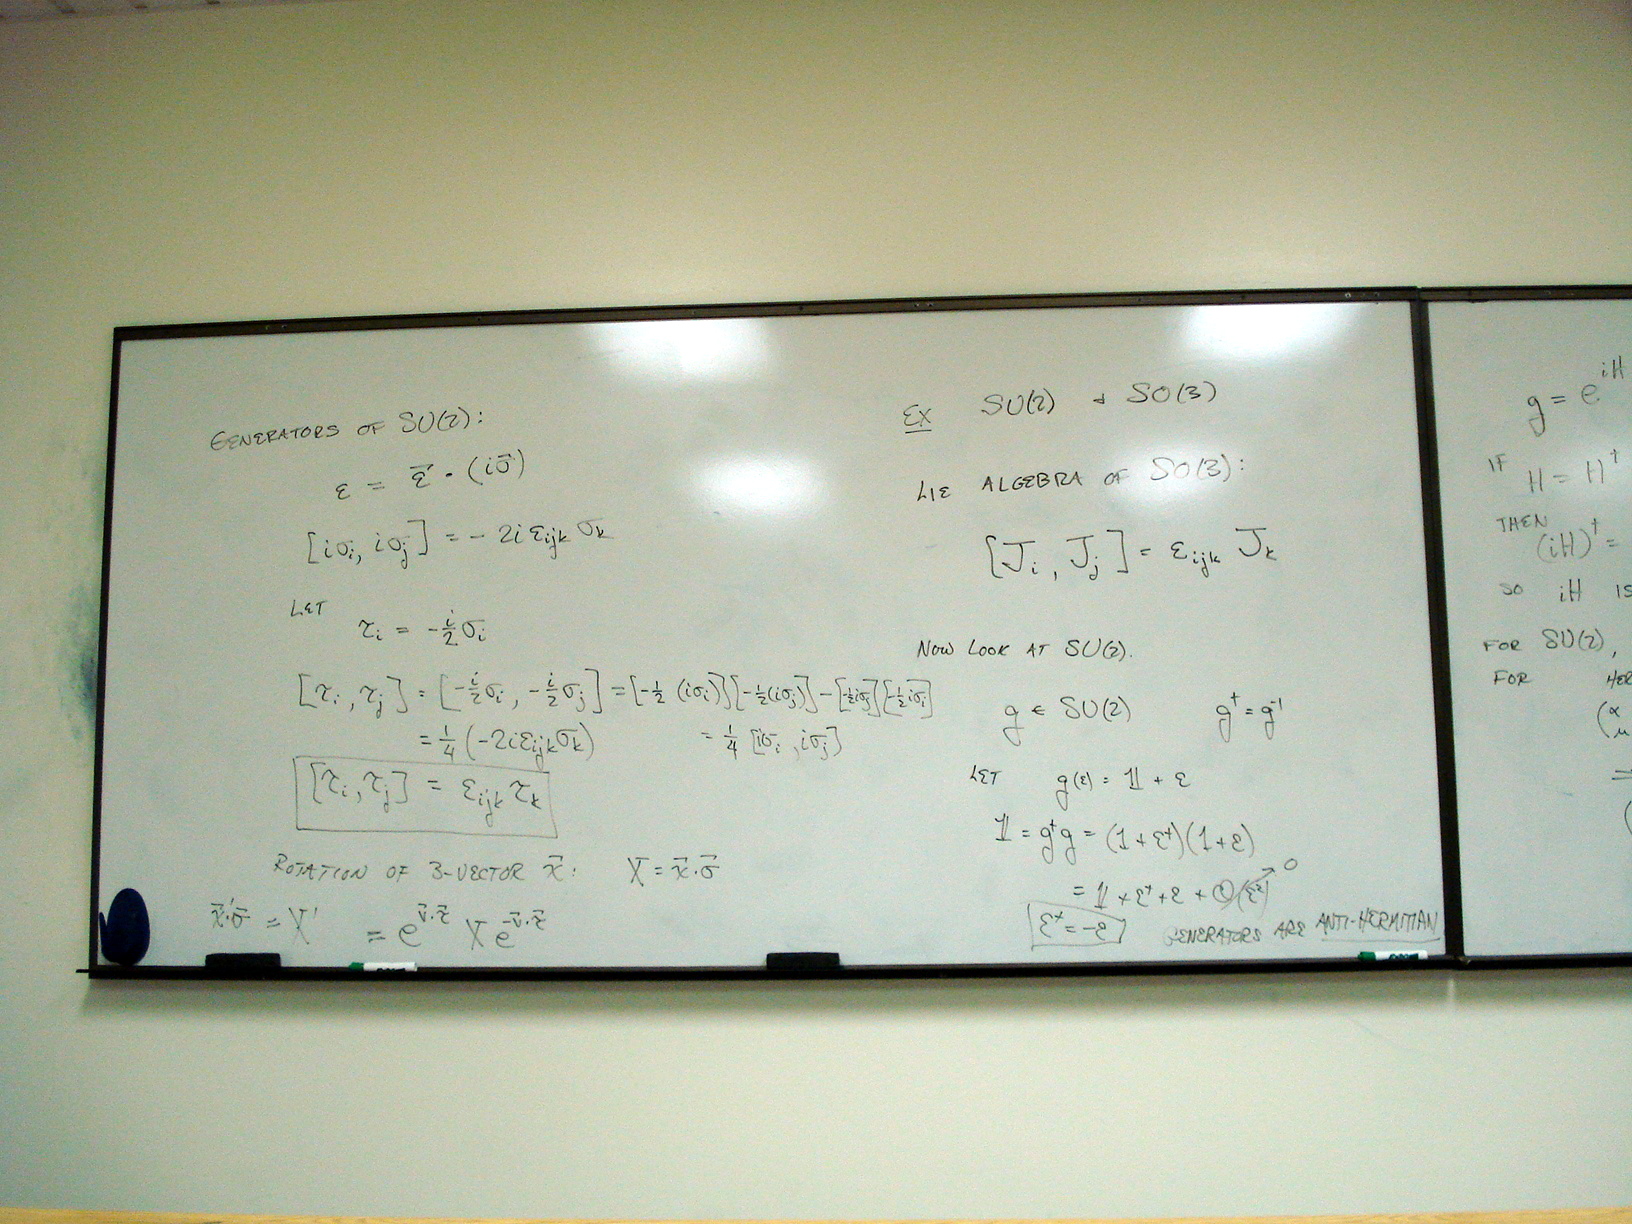 GENERATORS OF SU(2):
ε = ε⃗ · (iσ⃗)
[iσᵢ, iσⱼ] = - 2i εᵢⱼₖ σₖ
LET
τᵢ = -i/2 σᵢ
[τᵢ, τⱼ] = [-i/2 σᵢ, -i/2 σⱼ] = [-1/2 (iσᵢ)][-1/2 (iσⱼ)] - [-1/2 iσⱼ][-1/2 iσᵢ]
= 1/4 (-2i εᵢⱼₖ σₖ) = 1/4 [iσᵢ, iσⱼ]
[τᵢ, τⱼ] = εᵢⱼₖ τₖ
ROTATION OF 3-VECTOR x⃗: X = x⃗·σ⃗
x⃗'·σ⃗ = X' = e^{v⃗·τ⃗} X e^{-v⃗·τ⃗}
EX SU(2) + SO(3)
LIE ALGEBRA OF SO(3):
[Jᵢ, Jⱼ] = εᵢⱼₖ Jₖ
NOW LOOK AT SU(2).
g ∈ SU(2) g† = g⁻¹
LET g(ε) = 𝟙 + ε
𝟙 = g†g = (1 + ε†)(1 + ε)
= 𝟙 + ε† + ε + O(ε²) → 0
ε† = -ε GENERATORS ARE ANTI-HERMITIAN
g = e^{iH}
IF H = H†
THEN
(iH)† =
SO iH IS
FOR SU(2),
FOR HER
(α
μ
=
(